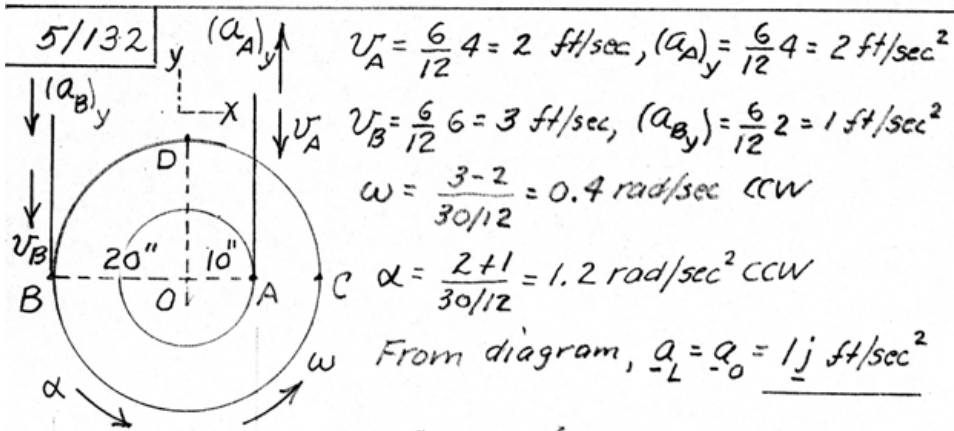 5/132
(a_A)_y
y
x
(a_B)_y
v_A
D
v_B
20" 10"
B O A C
α ω
v_A = 6/12 4 = 2 ft/sec, (a_A)_y = 6/12 4 = 2 ft/sec²
v_B = 6/12 6 = 3 ft/sec, (a_B_y) = 6/12 2 = 1 ft/sec²
ω = (3-2)/(30/12) = 0.4 rad/sec CCW
α = (2+1)/(30/12) = 1.2 rad/sec² CCW
From diagram, a_L = a_O = 1j ft/sec²